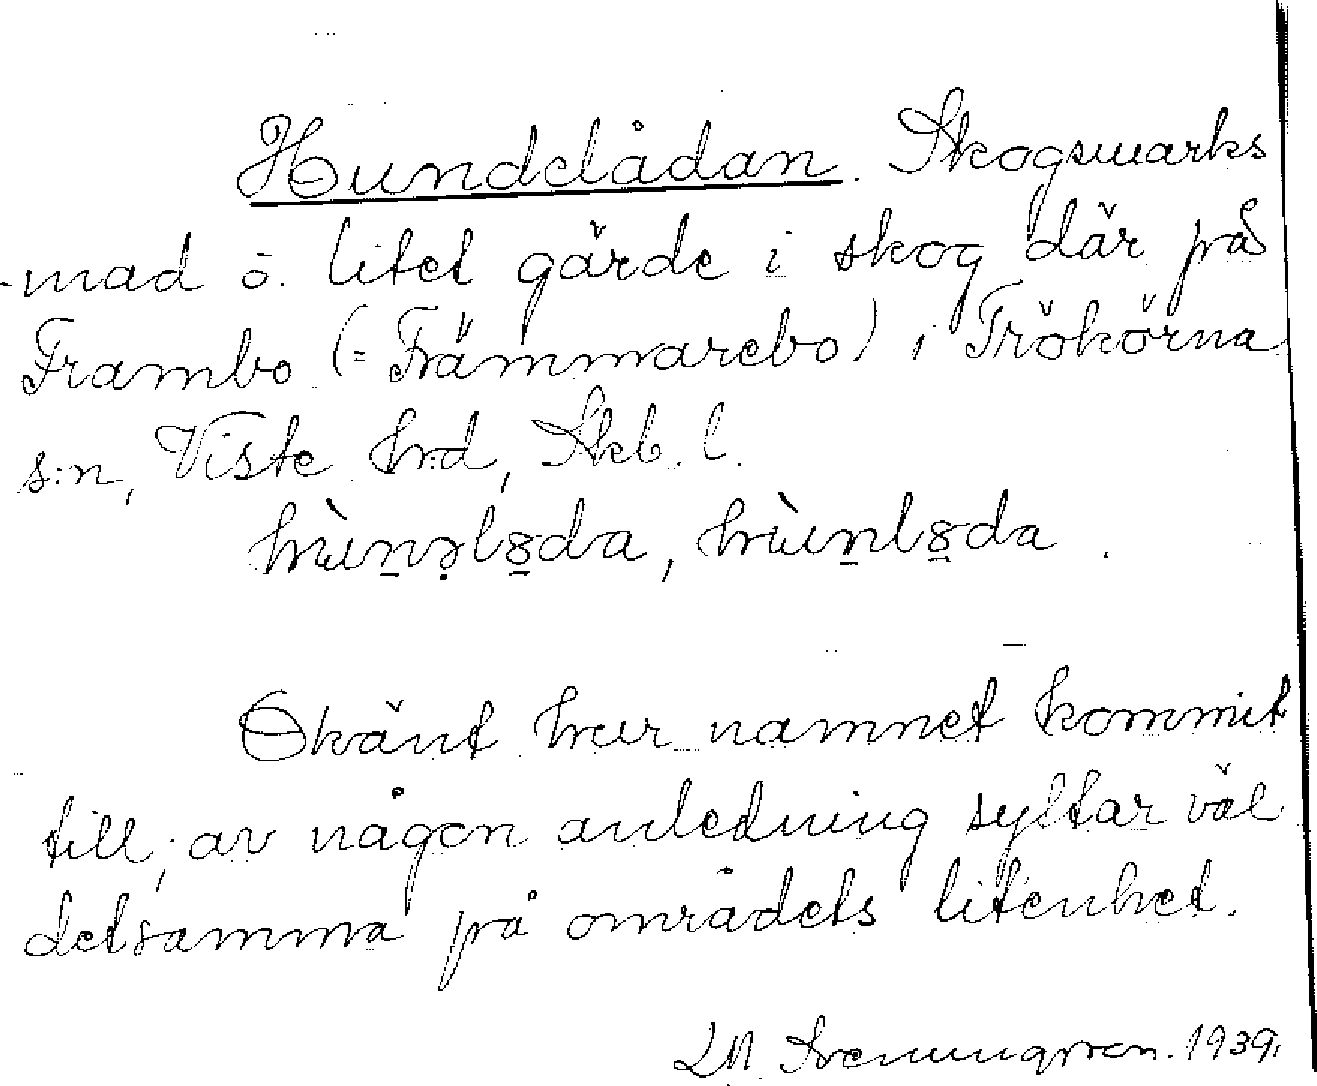 Hundelådan. Skogsmarks
-mad o. litet gärde i skog där på
Frambo (= Främmarebo) i Trökörna
s:n, Viste hrd, Skb. l.
Okänt hur namnet kommit
till; av någon anledning syftar väl
detsamma på områdets litenhet.
1939.